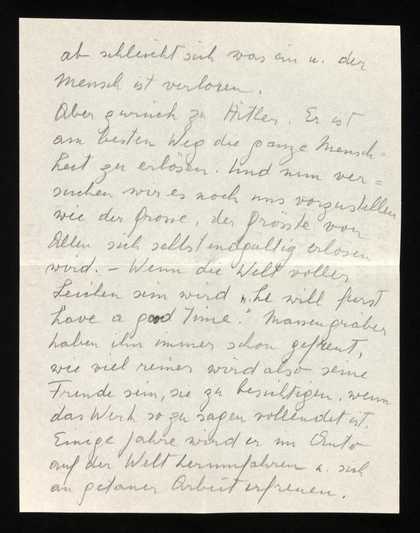 ab schleicht sich was ein u. der
Mensch ist verloren.
Aber zurück zu Hitler. Er ist
am besten Weg die ganze Mensch-
heit zu erlösen. Und nun ver=
suchen wir es noch uns vorzustellen
wie der grosse, der grösste von
Allen sich selbst endgultig erlösen
wird. – Wenn die Welt voller
Leichen sein wird "he will first
have a good Time". Massengräber
haben ihn immer schon gefreut,
wie viel reiner wird also seine
Freude sein, sie zu besichtigen, wenn
das Werk so zu sagen vollendet ist.
Einige Jahre wird er im Auto
auf der Welt herumfahren u. sich
an getaner Arbeit erfreuen.